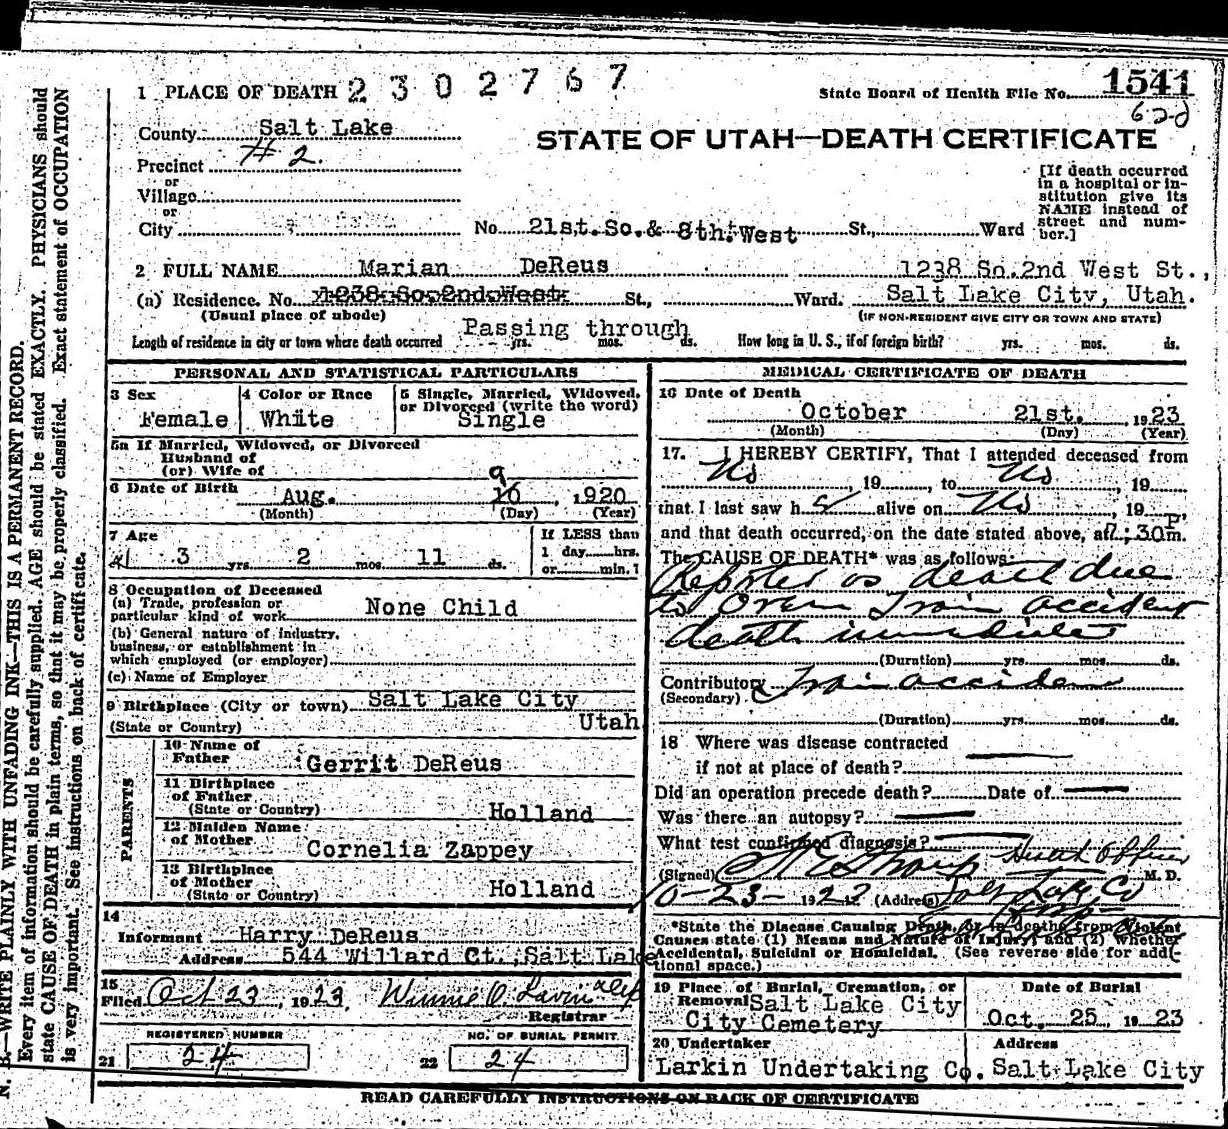 1 PLACE OF DEATH 2302767
State Board of Health File No. 1541
County Salt Lake
STATE OF UTAH—DEATH CERTIFICATE
Precinct #2.
or
Village
or
City
No. 21st. So. & 8th. West St., Ward
[If death occurred in a hospital or institution give its NAME instead of street and number.]
2 FULL NAME Marian DeReus 1238 So. 2nd West St.,
(a) Residence. No. 1238 So. 2nd West St., Ward. Salt Lake City, Utah.
(Usual place of abode) (IF NON-RESIDENT GIVE CITY OR TOWN AND STATE)
Passing through
Length of residence in city or town where death occurred yrs. mos. ds. How long in U. S., if of foreign birth? yrs. mos. ds.
PERSONAL AND STATISTICAL PARTICULARS
3 Sex
Female
4 Color or Race
White
5 Single, Married, Widowed, or Divorced (write the word)
Single
5a If Married, Widowed, or Divorced
Husband of
(or) Wife of
6 Date of Birth Aug. 9 , 1920
(Month) (Day) (Year)
7 Age
3 yrs. 2 mos. 11 ds.
If LESS than
1 day hrs.
or min.?
8 Occupation of Deceased
(a) Trade, profession or
particular kind of work None Child
(b) General nature of industry,
business, or establishment in
which employed (or employer)
(c) Name of Employer
9 Birthplace (City or town) Salt Lake City
(State or Country) Utah
PARENTS
10 Name of
Father Gerrit DeReus
11 Birthplace
of Father
(State or Country) Holland
12 Maiden Name
of Mother Cornelia Zappey
13 Birthplace
of Mother
(State or Country) Holland
14
Informant Harry DeReus
Address 544 Willard Ct., Salt Lake
15
Filed Oct 23, 1923
Registrar
REGISTERED NUMBER
21 24
NO. OF BURIAL PERMIT
22 24
MEDICAL CERTIFICATE OF DEATH
16 Date of Death
October 21st. 1923
(Month) (Day) (Year)
17. I HEREBY CERTIFY, That I attended deceased from
No , 19 , to No , 19
that I last saw h alive on No , 19
and that death occurred, on the date stated above, at :30 P m.
The CAUSE OF DEATH* was as follows:
death due
to Train accident
death immediate
(Duration) yrs. mos. ds.
Contributory Train accident
(Secondary)
(Duration) yrs. mos. ds.
18 Where was disease contracted
if not at place of death?
Did an operation precede death? Date of
Was there an autopsy?
What test confirmed diagnosis?
(Signed) Health Officer M. D.
10-23- 19 (Address) Salt Lake Co
*State the Disease Causing Death, or in deaths from Violent
Causes state (1) Means and Nature of Injury; and (2) whether
Accidental, Suicidal or Homicidal. (See reverse side for addi-
tional space.)
19 Place of Burial, Cremation, or
Removal Salt Lake City
City Cemetery
Date of Burial
Oct. 25, 1923
20 Undertaker
Larkin Undertaking Co.
Address
Salt Lake City
READ CAREFULLY INSTRUCTIONS ON BACK OF CERTIFICATE
N. B.—WRITE PLAINLY WITH UNFADING INK—THIS IS A PERMANENT RECORD.
Every item of information should be carefully supplied. AGE should be stated EXACTLY. PHYSICIANS should
state CAUSE OF DEATH in plain terms, so that it may be properly classified. Exact statement of OCCUPATION
is very important. See instructions on back of certificate.